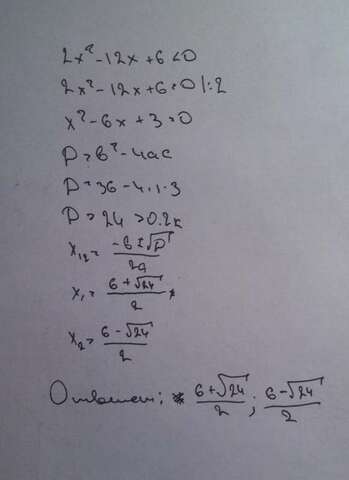 2x² - 12x + 6 < 0
2x² - 12x + 6 = 0 | : 2
x² - 6x + 3 = 0
D = b² - 4ac
D = 36 - 4 · 1 · 3
D = 24 > 0. 2к
x₁₂ = (-b ± √D) / 2a
x₁ = (6 + √24) / 2
x₂ = (6 - √24) / 2
Ответ: (6 + √24) / 2 ; (6 - √24) / 2